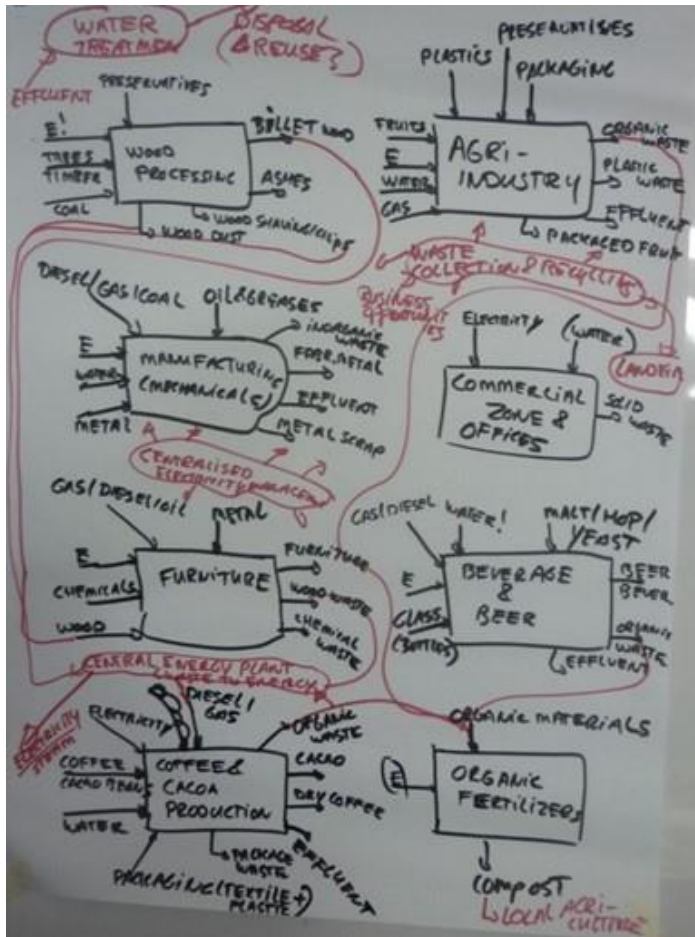 WATER
TREATMEN
DISPOSAL
(& REUSE?)
EFFLUENT
PRESERVATIVES
E!
TREES
TIMBER
COAL
WOOD
PROCESSING
BILLET WOOD
ASHES
WOOD SHAVING/CHIPS
WOOD DUST
PLASTICS
PRESERVATIVES
PACKAGING
FRUITS
E
WATER
GAS
AGRI-
INDUSTRY
ORGANIC
WASTE
PLASTIC
WASTE
EFFLUENT
PACKAGED FRUIT
WASTE
COLLECTION & RECYCLING
BUSINESS
OPPORTUNIT
IES
LANDFILL
DIESEL/
GAS/COAL
OIL & GREASES
E
WATER
METAL
MANUFACTURING
(MECHANICALS)
INORGANIC
WASTE
EFFLUENT
METAL SCRAP
CENTRALISED
ELECTRICITY MANAGEM
ELECTRICITY
(WATER)
COMMERCIAL
ZONE &
OFFICES
SOLID
WASTE
GAS/DIESEL/OIL
METAL
E
CHEMICALS
WOOD
FURNITURE
FURNITURE
WOOD WASTE
CHEMICAL
WASTE
GAS/DIESEL
WATER!
MALT/HOP/
YEAST
E
GLASS
(BOTTLES)
BEVERAGE
&
BEER
BEER
BEVER.
ORGANIC
WASTE
EFFLUENT
CENTRAL ENERGY PLANT
WASTE TO ENERGY
ELECTRICITY
STEAM
ELECTRICITY
DIESEL/
GAS
COFFEE
CACAO BEANS
WATER
COFFEE &
CACOA
PRODUCTION
ORGANIC
WASTE
CACAO
DRY COFFEE
EFFLUENT
PACKAGE
WASTE
PACKAGING (TEXTILE +
PLASTIC)
ORGANIC MATERIALS
E
ORGANIC
FERTILIZERS
COMPOST
LOCAL AGRI-
CULTURE